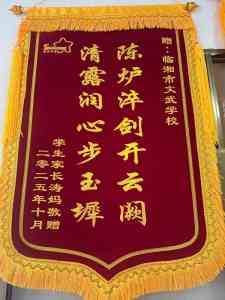 赠：临湘市文武学校
陈炉淬剑开云阙
清露润心步玉墀
学生家长涛妈敬赠
二零二五年十月